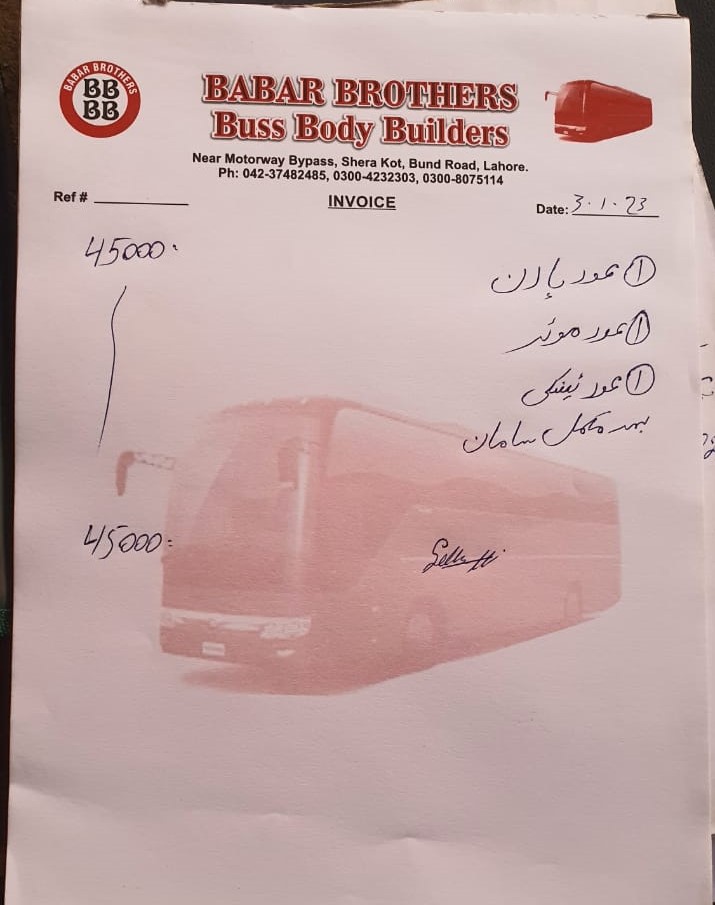 BABAR BROTHERS
BB
BB
BABAR BROTHERS
Buss Body Builders
Near Motorway Bypass, Shera Kot, Bund Road, Lahore.
Ph: 042-37482485, 0300-4232303, 0300-8075114
Ref #
INVOICE
Date: 3.1.23
45000.
① عدد ہارن
① عدد موٹر
① عدد ٹینکی
بمعہ مکمل سامان
45000=